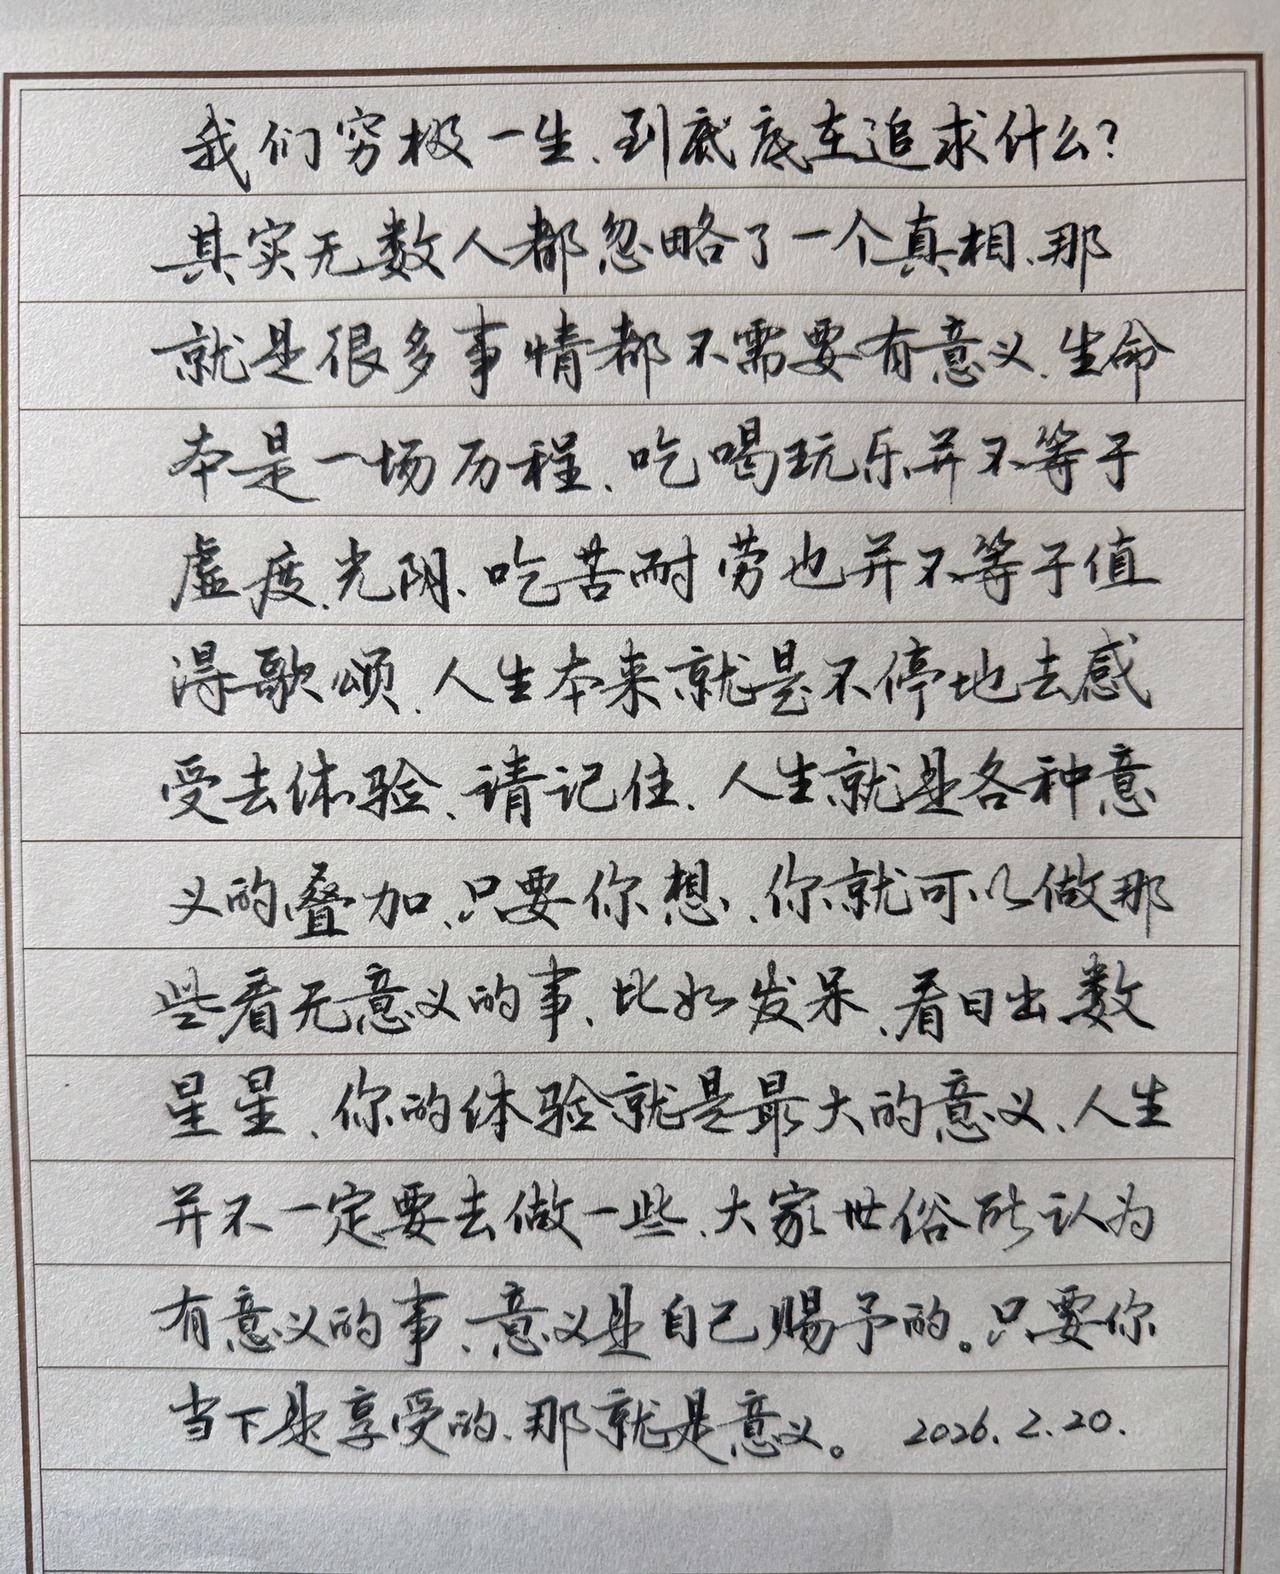 我们穷极一生、到底底在追求什么?
其实无数人都忽略了一个真相、那
就是很多事情都不需要有意义、生命
本是一场历程、吃喝玩乐并不等于
虚度、光阴、吃苦耐劳也并不等于值
得歌颂、人生本来就是不停地去感
受去体验、请记住、人生就是各种意
义的叠加、只要你想、你就可以做那
些看无意义的事、比如发呆、看日出数
星星、你的体验就是最大的意义、人生
并不一定要去做一些、大家世俗所认为
有意义的事、意义是自己赐予的。只要你
当下是享受的、那就是意义。 2026.2.20.